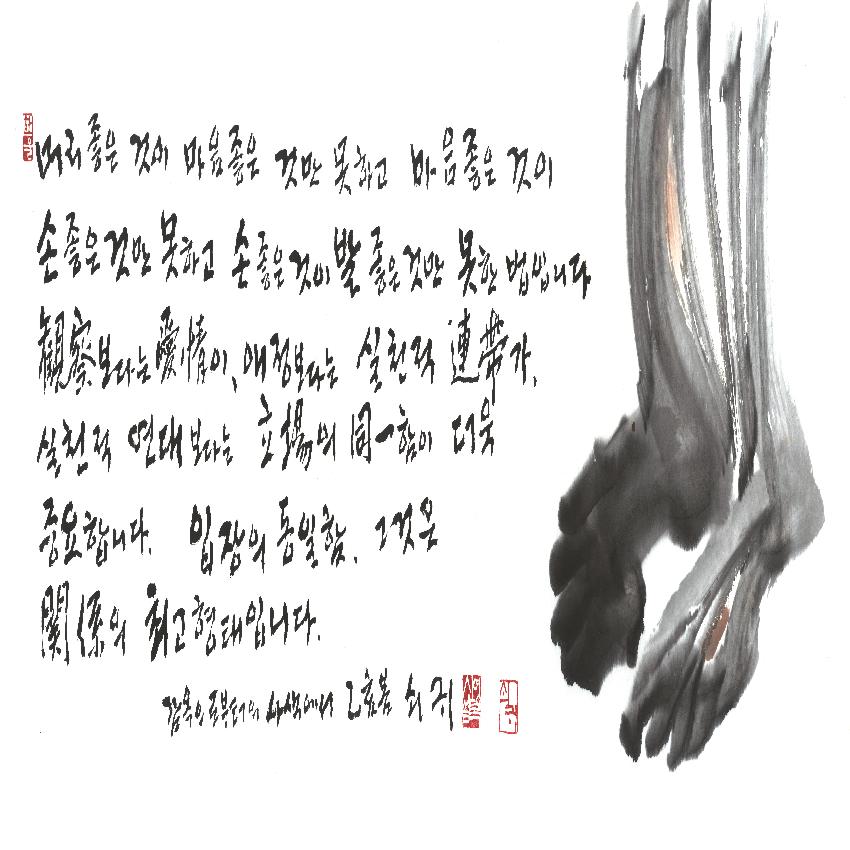 머리 좋은 것이 마음 좋은 것만 못하고 마음 좋은 것이
손 좋은 것만 못하고 손 좋은 것이 발 좋은 것만 못한 법입니다
觀察보다는 愛情이, 애정보다는 실천적 連帶가,
실천적 연대보다는 立場의 同一함이 더욱
중요합니다. 입장의 동일함. 그것은
關係의 최고형태입니다.
감옥으로부터의 사색에서